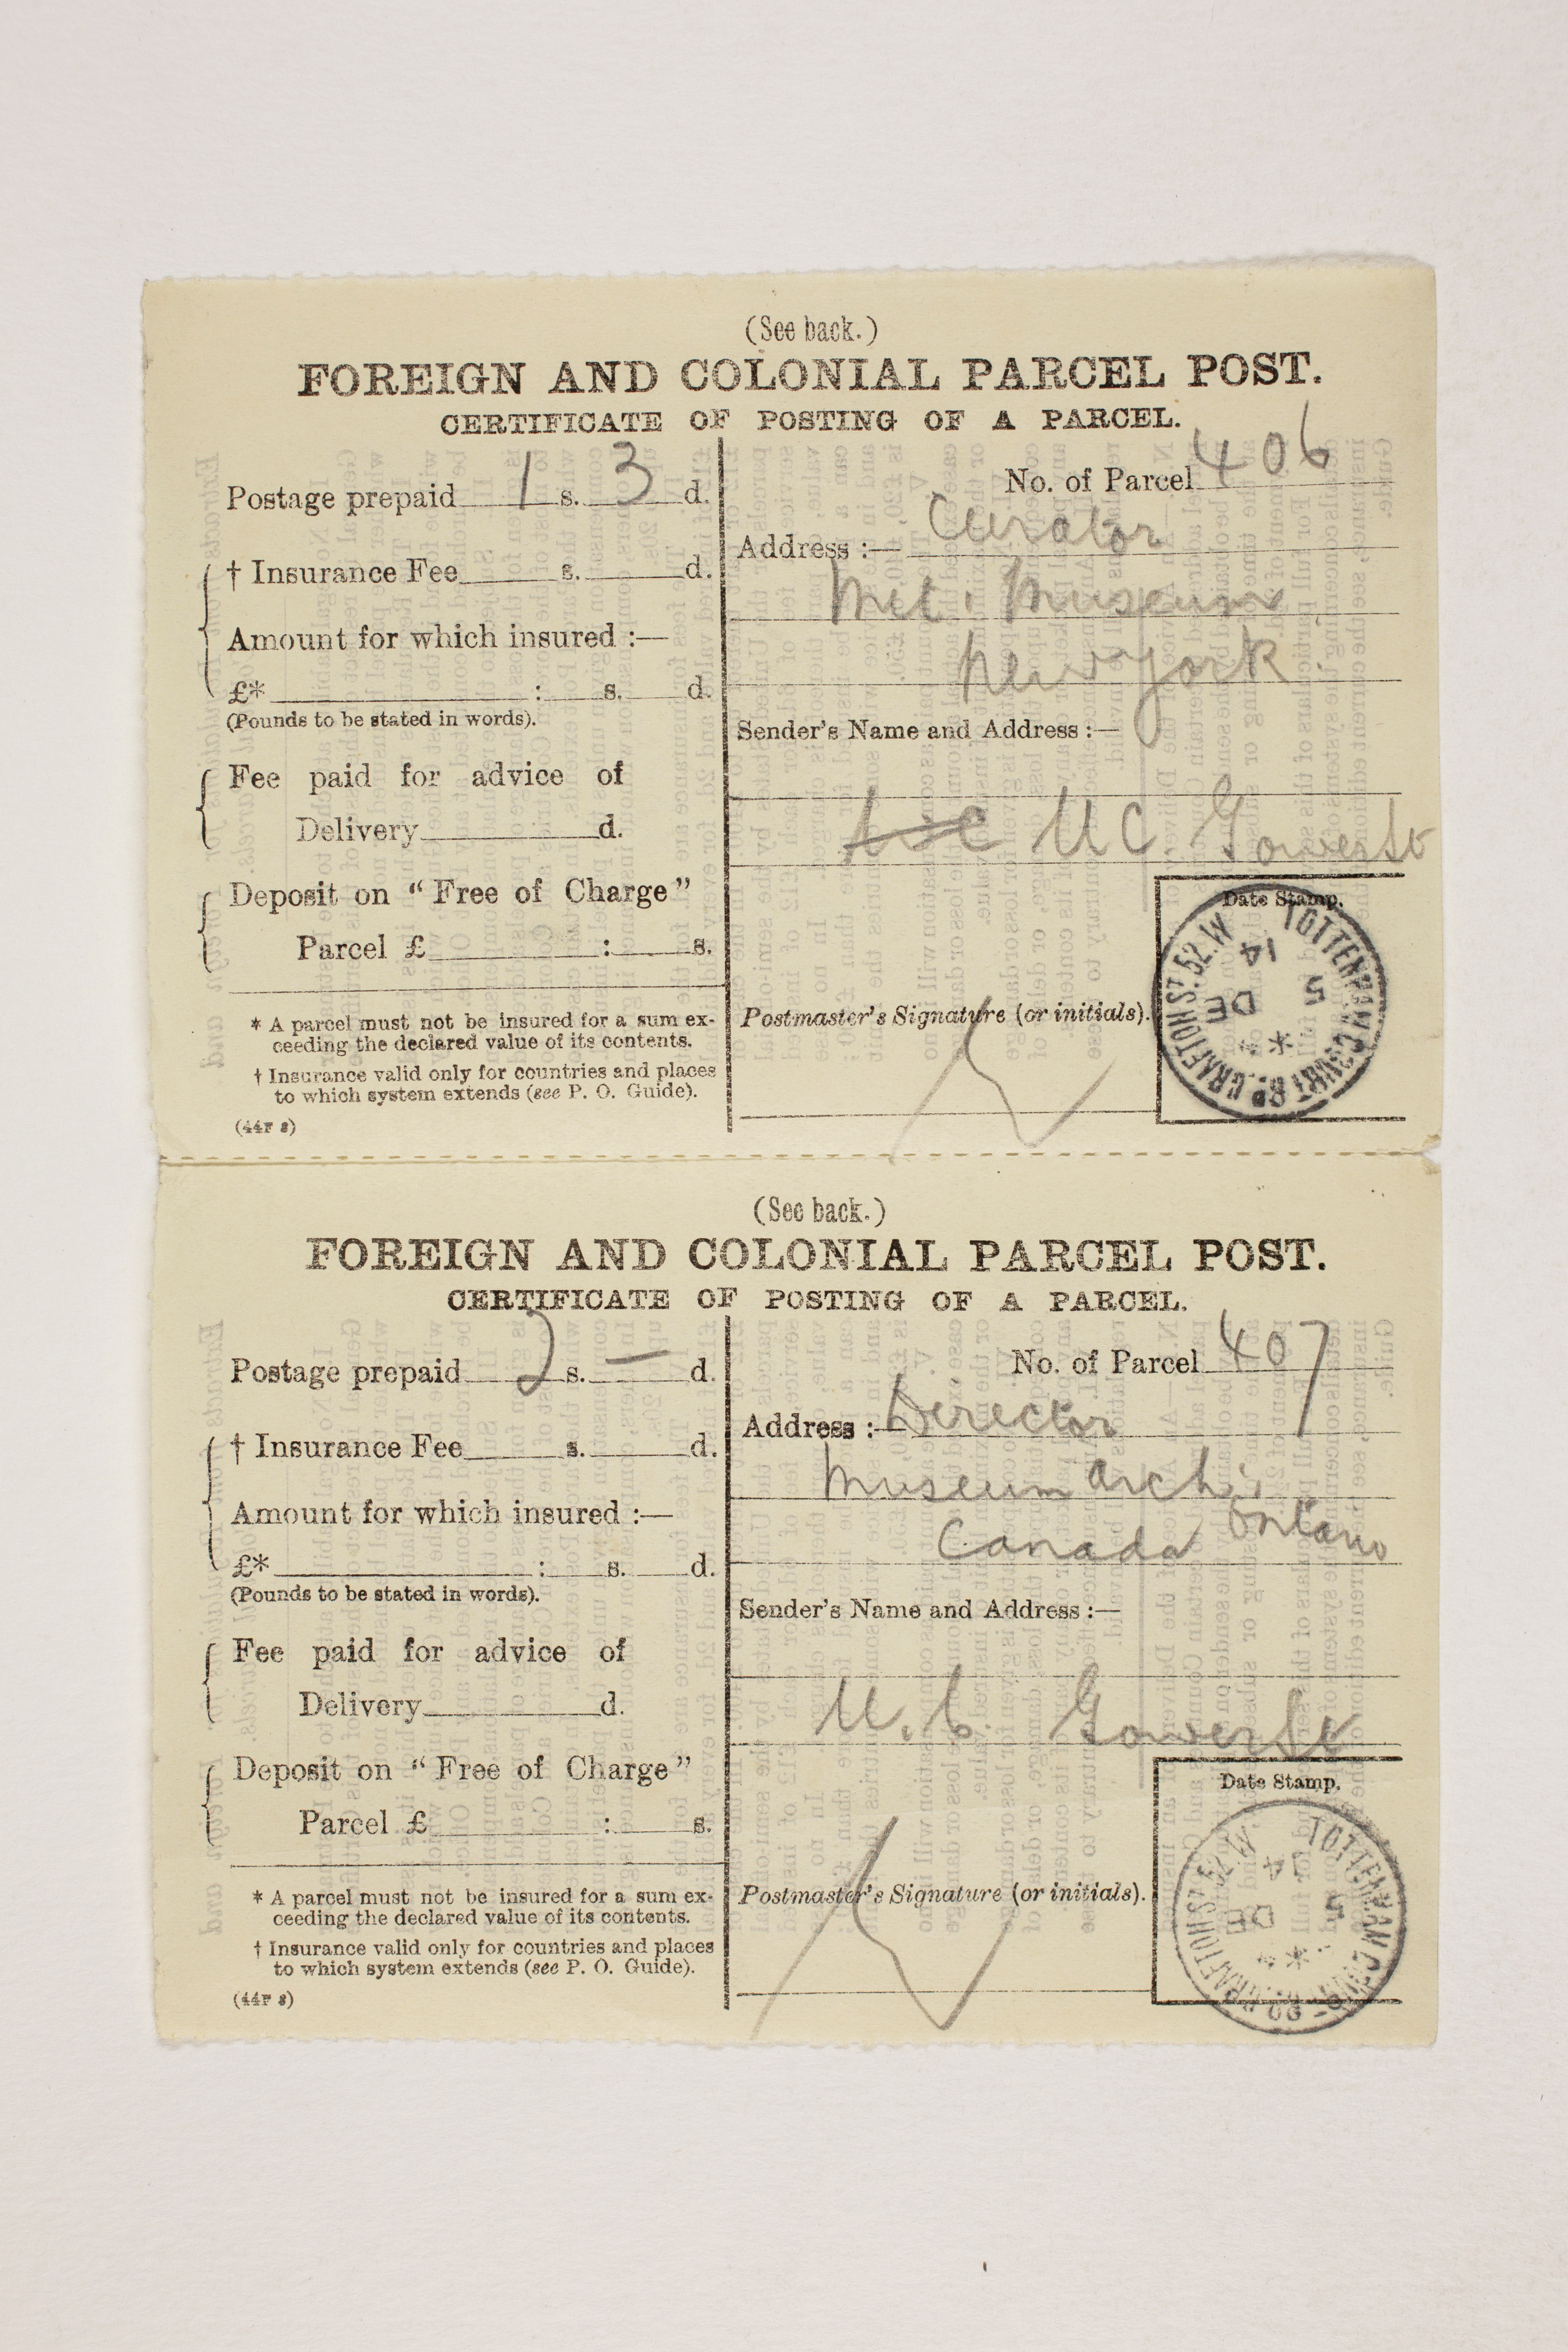 (See back.)
FOREIGN AND COLONIAL PARCEL POST.
CERTIFICATE OF POSTING OF A PARCEL.
Postage prepaid 1 s. 3 d.
† Insurance Fee s. d.
Amount for which insured :—
£* : s. d.
(Pounds to be stated in words).
Fee paid for advice of
Delivery d.
Deposit on “Free of Charge”
Parcel £ : s.
* A parcel must not be insured for a sum ex-
ceeding the declared value of its contents.
† Insurance valid only for countries and places
to which system extends (see P. O. Guide).
(44F s)
No. of Parcel 406
Address :— Curator
Met. Museum
New York.
Sender's Name and Address :—
U C. Gower St
Postmaster's Signature (or initials).
Date Stamp.
TOTTENHAM COURT RD. GRAFTON ST. 52. W
5
DE
14
(See back.)
FOREIGN AND COLONIAL PARCEL POST.
CERTIFICATE OF POSTING OF A PARCEL.
Postage prepaid 2 s. — d.
† Insurance Fee s. d.
Amount for which insured :—
£* : s. d.
(Pounds to be stated in words).
Fee paid for advice of
Delivery d.
Deposit on “Free of Charge”
Parcel £ : s.
* A parcel must not be insured for a sum ex-
ceeding the declared value of its contents.
† Insurance valid only for countries and places
to which system extends (see P. O. Guide).
(44F s)
No. of Parcel 407
Address :— Director
Museum Arch.
Ontario
Canada
Sender's Name and Address :—
U. C. Gower St
Postmaster's Signature (or initials).
Date Stamp.
TOTTENHAM COURT RD. GRAFTON ST. 52. W
5
DE
14